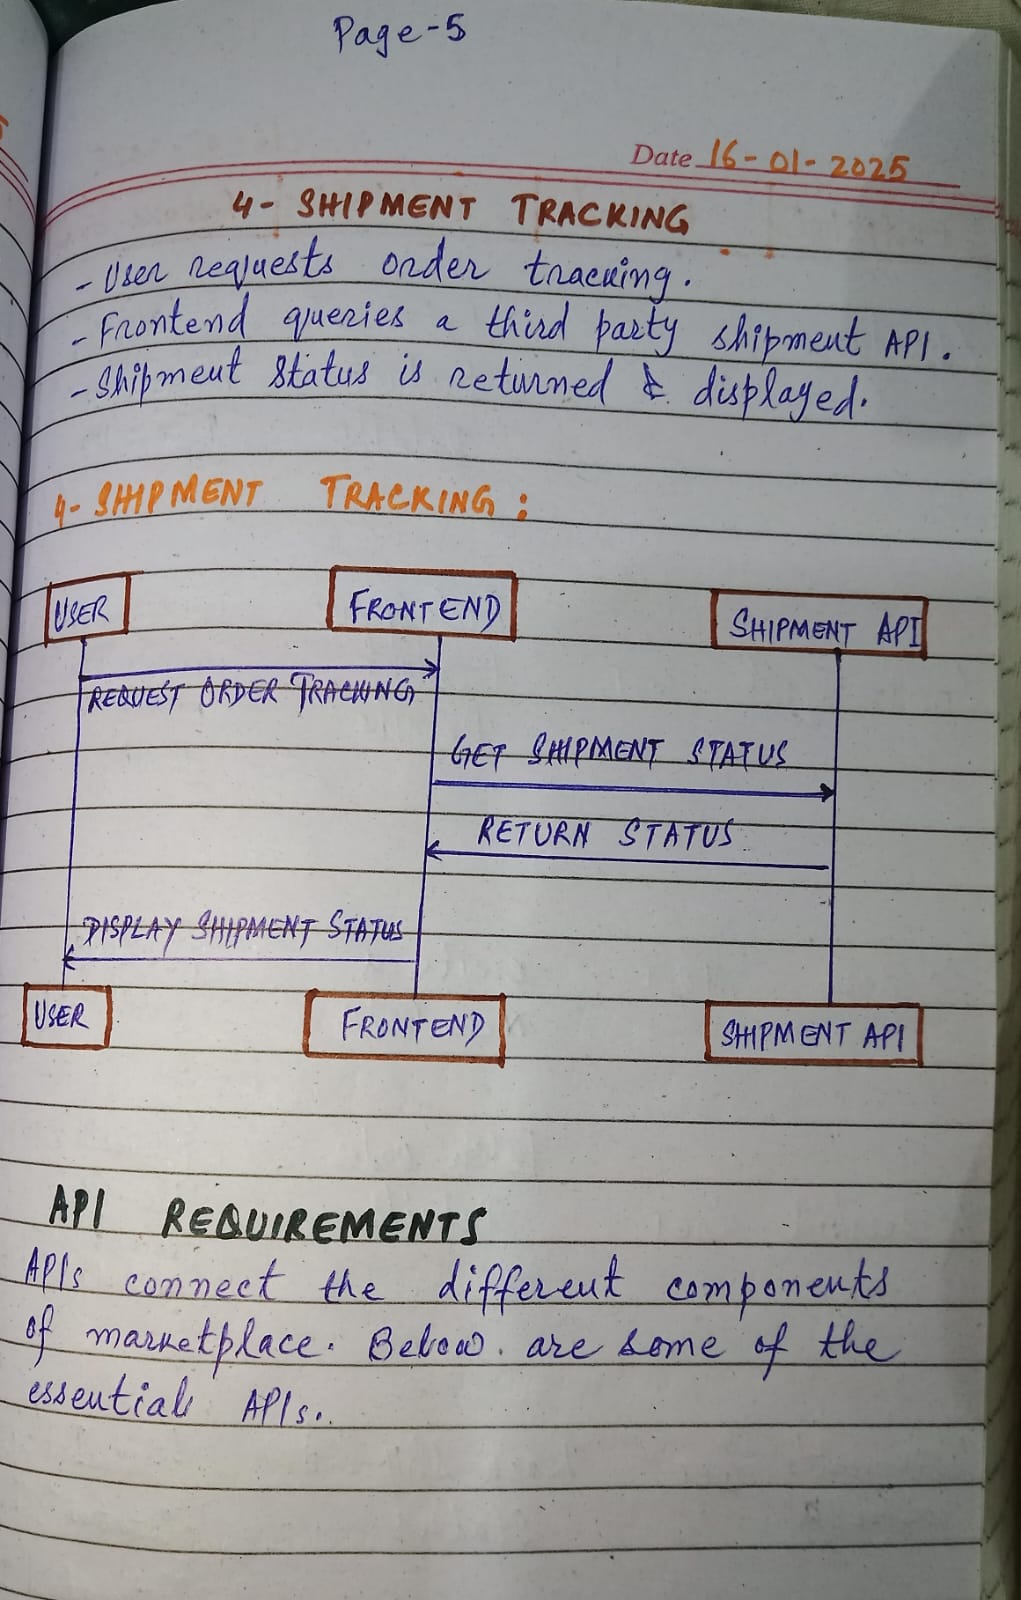 Page-5
Date 16-01-2025
4- SHIPMENT TRACKING
- User requests order tracking.
- Frontend queries a third party shipment API.
- Shipment Status is returned & displayed.
4- SHIPMENT TRACKING:
USER FRONTEND SHIPMENT API
REQUEST ORDER TRACKING
GET SHIPMENT STATUS
RETURN STATUS
DISPLAY SHIPMENT STATUS
USER FRONTEND SHIPMENT API
API REQUIREMENTS
APIs connect the different components
of marketplace. Below are some of the
essential APIs.